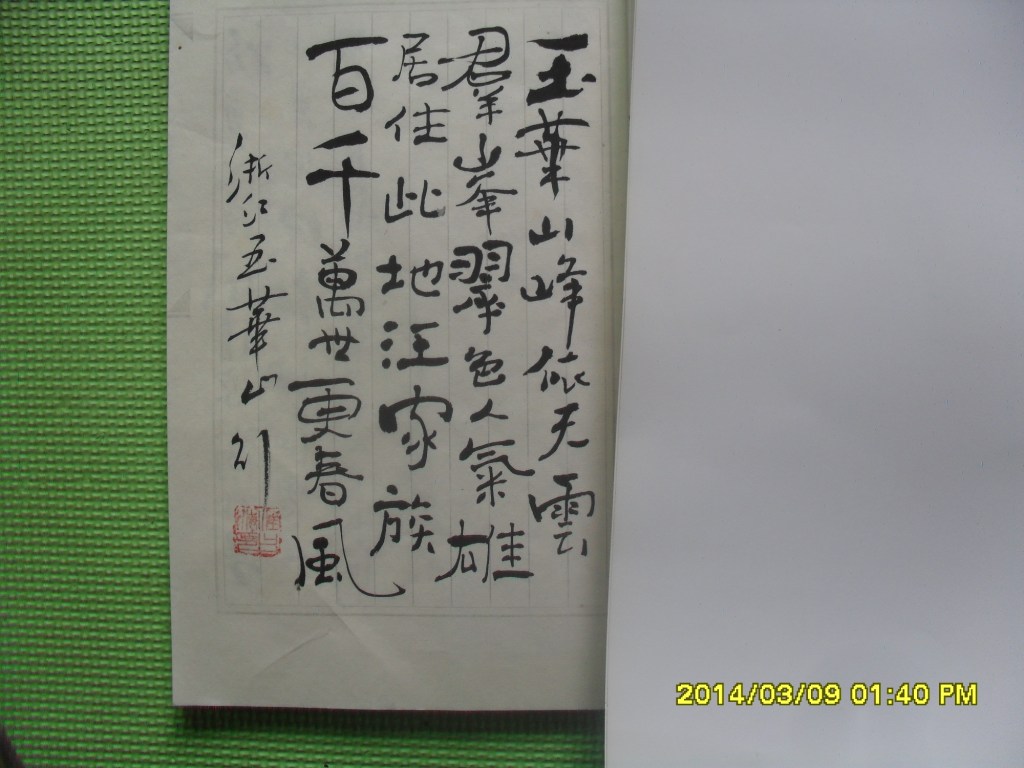 玉華山峰依天雲
羣山峯翠色人氣雄
居住此地汪家族
百千萬世更春風
浙江玉華山
2014/03/09 01:40 PM